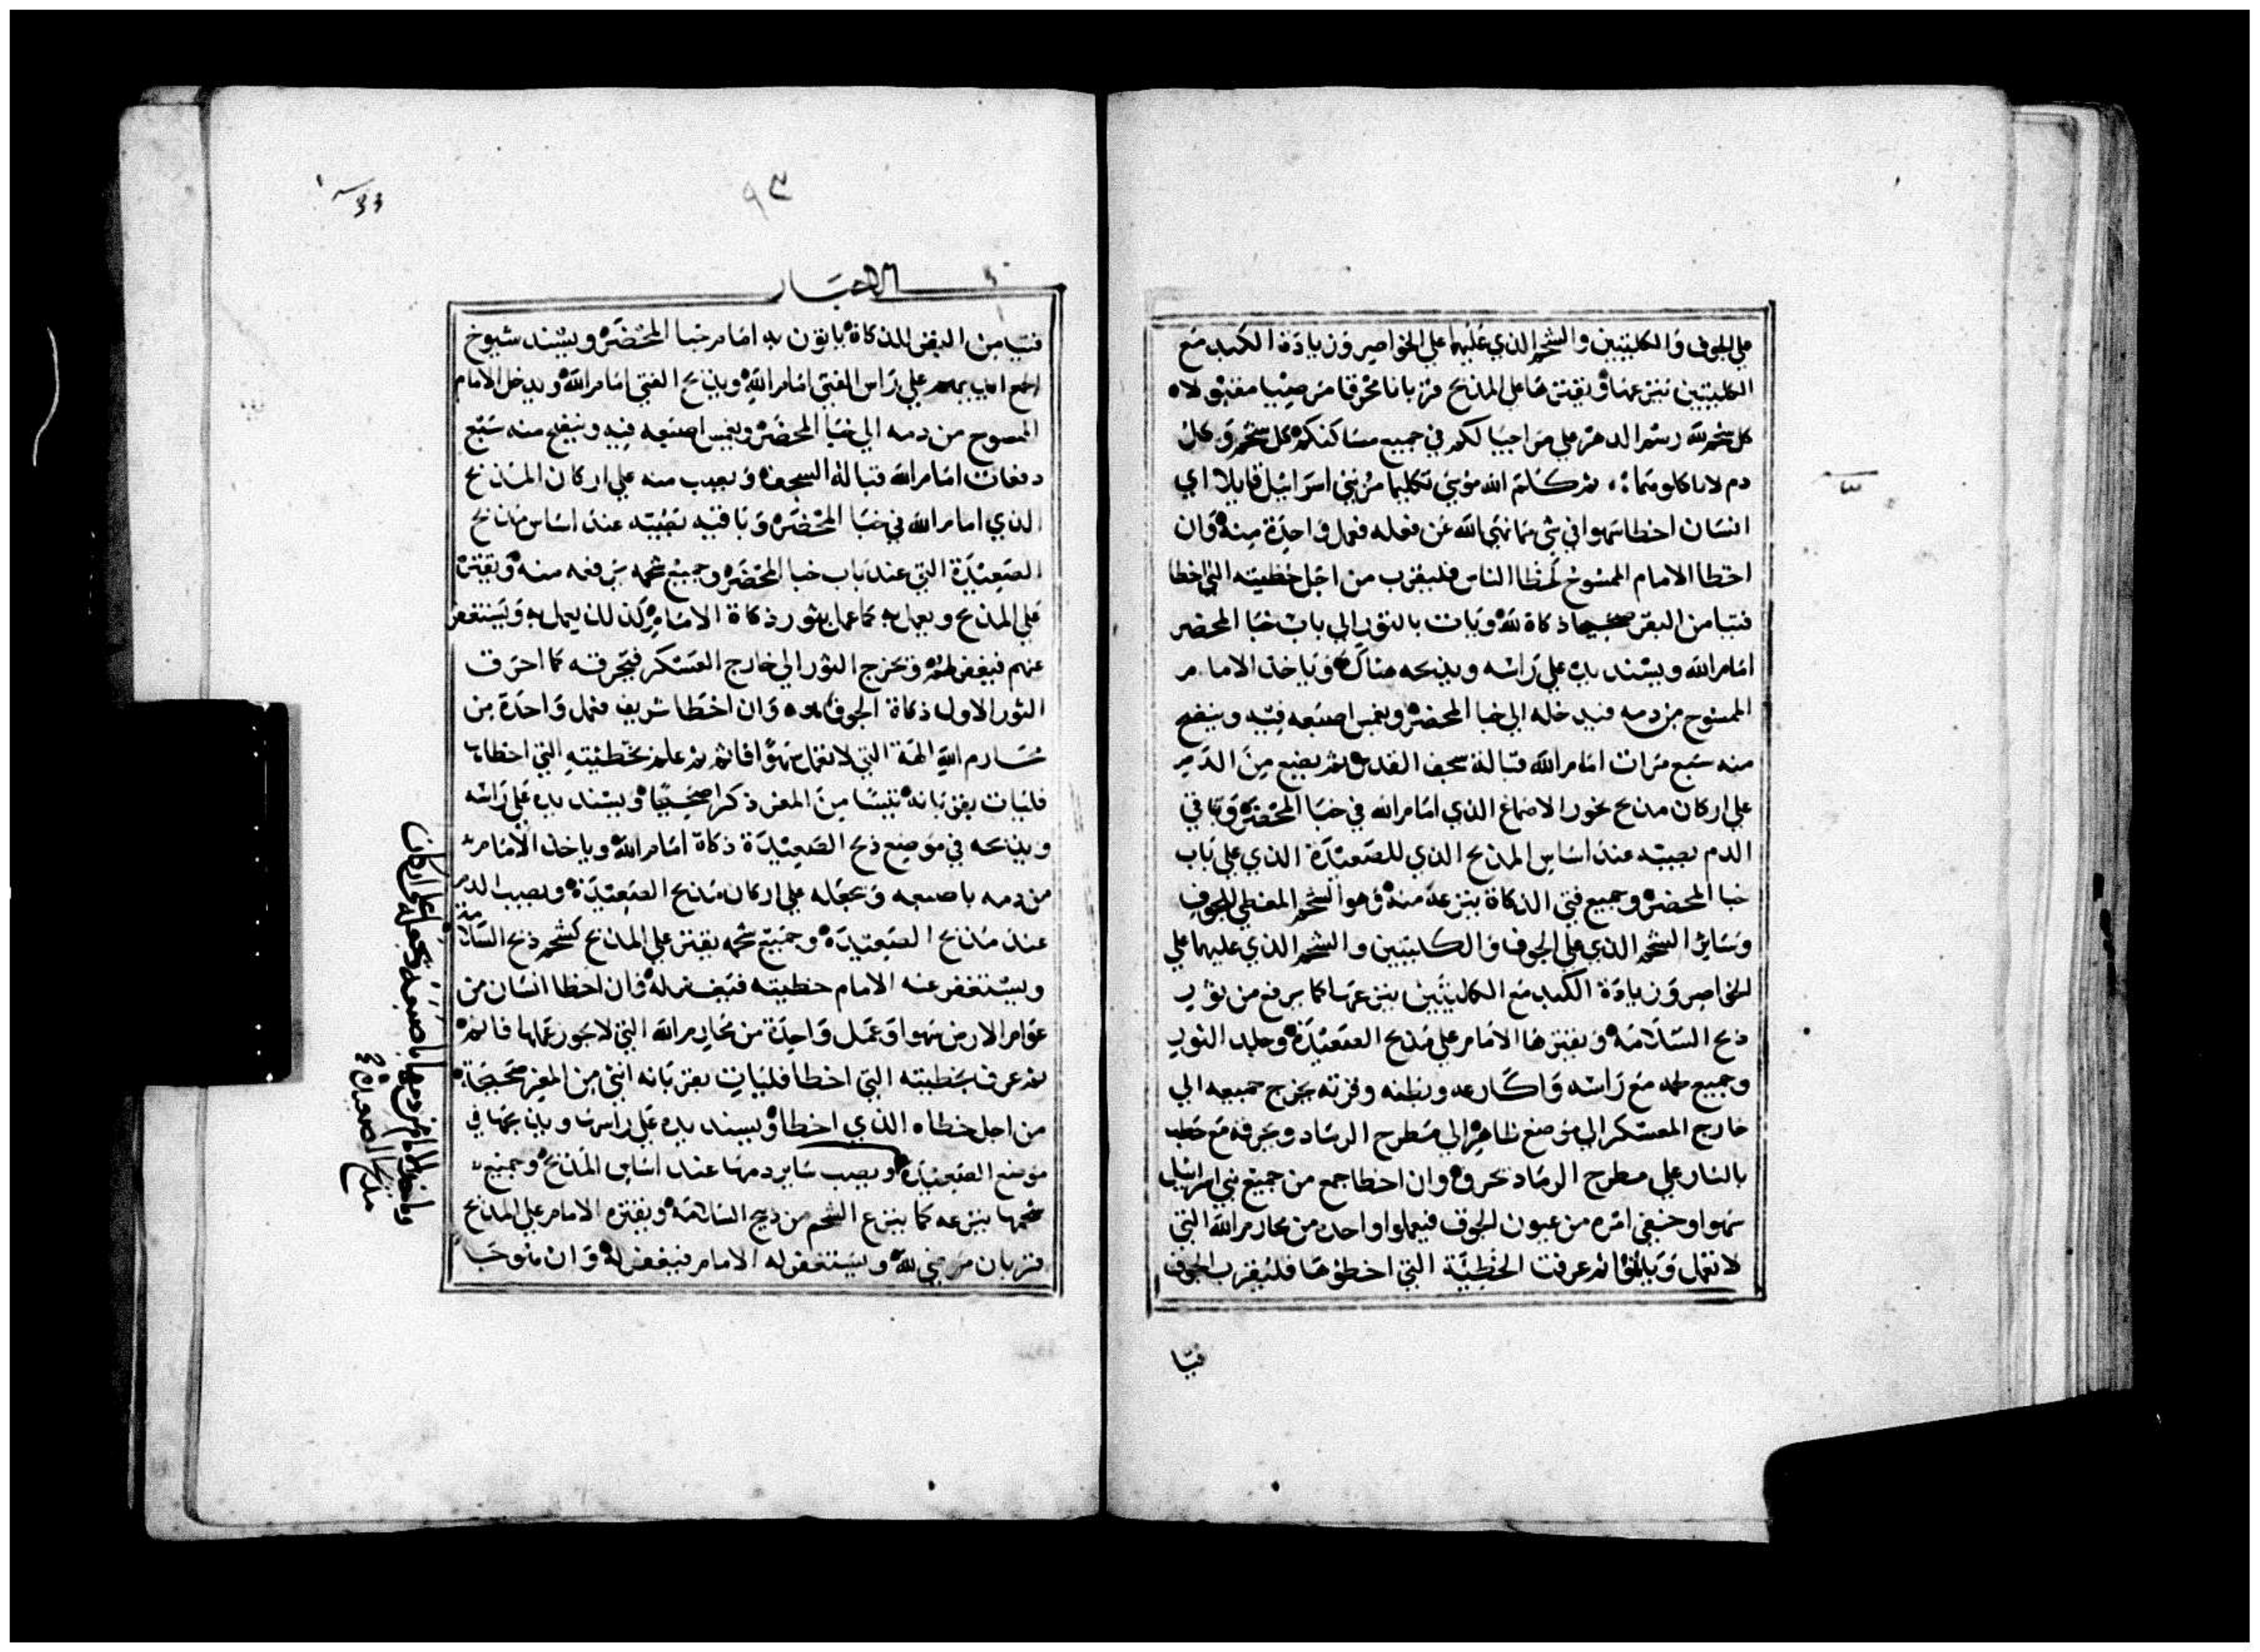 علي الجوف والكليتين والشحم الذي عليهما علي الخواصر وزيادة الكبد مع
الكليتين ينزعها ويقترها علي المذبح قربانا محرقا مرضيا مقبولاه
كل شحم لله رسم الدهر علي مر اجيالكم في جميع مساكنكم كل شحم وكل
دم لا تاكلوهما ثم كلم الله موسي تكليما مر بني اسراييل قايلا اي
انسان اخطا سهوا في شي مما نهي الله عن فعله فعمل واحدة منه وان
اخطا الامام الممسوح كخطا الناس فليقرب من اجل خطيته التي اخطا
فتيا من البقر صحيحا ذكاة لله ويات بالثور الي باب خبا المحضر
امام الله ويسند يده علي راسه ويذبحه هناك وياخذ الامام
الممسوح من دمه فيدخله الي خبا المحضر ويغمس اصبعه فيه وينضح
منه سبع مرات امام الله قبالة سجف القدس ثم يضع من الدم
علي اركان مذبح بخور الاصماغ الذي امام الله في خبا المحضر وباقي
الدم يصبه عند اساس المذبح الذي للصعيدة الذي علي باب
خبا المحضر وجميع فتي الذكاة ينزعه منه وهو الشحم المغطي للجوف
وساير الشحم الذي علي الجوف والكليتين والشحم الذي عليهما علي
الخواصر وزيادة الكبد مع الكليتين ينزعها كما يرفع من ثور
ذبح السلامة ويقترها الامام علي مذبح الصعيدة وجلد الثور
وجميع لحمه مع راسه واكارعه وبطنه وفرثه يخرج جميعه الي
خارج المعسكر الي موضع طاهر الي مطرح الرماد ويحرقه مع حطب
بالنار علي مطرح الرماد يحرق وان اخطا جمع من جميع بني اسراييل
سهوا وخفي امره من عيون الجوق فيعملوا واحده من محارم الله التي
لا تعمل وياثموا ثم عرفت الخطية التي اخطوها فليقرب الجوق
فتيا
٩٣
الاحبار
فتيا من البقر للذكاة ياتون به امام خبا المحضر ويسند شيوخ
الجمع ايديهم علي راس الفتي امام الله ويذبح الفتي امام الله ويدخل الامام
الممسوح من دمه الي خبا المحضر ويغمس اصبعه فيه وينضح منه سبع
دفعات امام الله قبالة السجف ويصب منه علي اركان المذبح
الذي امام الله في خبا المحضر وباقيه يصبه عند اساس مذبح
الصعيدة التي عند باب خبا المحضر وجميع شحمه يرفعه منه ويقتره
علي المذبح ويعمل به كما عمل بثور ذكاة الامام كذلك يعمل به ويستغفر
عنهم فيغفر لهم ويخرج الثور الي خارج العسكر فيحرقه كما احرق
الثور الاول ذكاة الجوق هو وان اخطا شريف فعمل واحدة من
محارم الله الهه التي لا تعمل سهوا فاثم ثم علم بخطيته التي اخطا بها
فليات بقربانه تيسا من المعز ذكرا صحيحا ويسند يده علي راسه
ويذبحه في موضع ذبح الصعيدة ذكاة امام الله وياخذ الامام
من دمه باصبعه ويجعله علي اركان مذبح الصعيدة ويصب الدم
عند مذبح الصعيدة وجميع شحمه يقتر علي المذبح كشحم ذبح السلامة
ويستغفر عنه الامام خطيته فتغفر له وان اخطا انسان من
عوام الارض سهوا وعمل واحدة من محارم الله التي لا يجوز عملها فاثم
ثم عرف بخطيته التي اخطا فليات بقربانه انثي من المعز صحيحة
من اجل خطاه الذي اخطا ويسند يده علي راسها ويذبحها في
موضع الصعيدة ويصب ساير دمها عند اساس المذبح وجميع
شحمها ينزعه كما ينزع الشحم من ذبح السلامة ويقتره الامام علي المذبح
قربان مرضي لله ويستغفر له الامام فيغفر له وان
وياخذ الامام من دمها باصبعه ويجعله علي اركان
مذبح الصعيدة